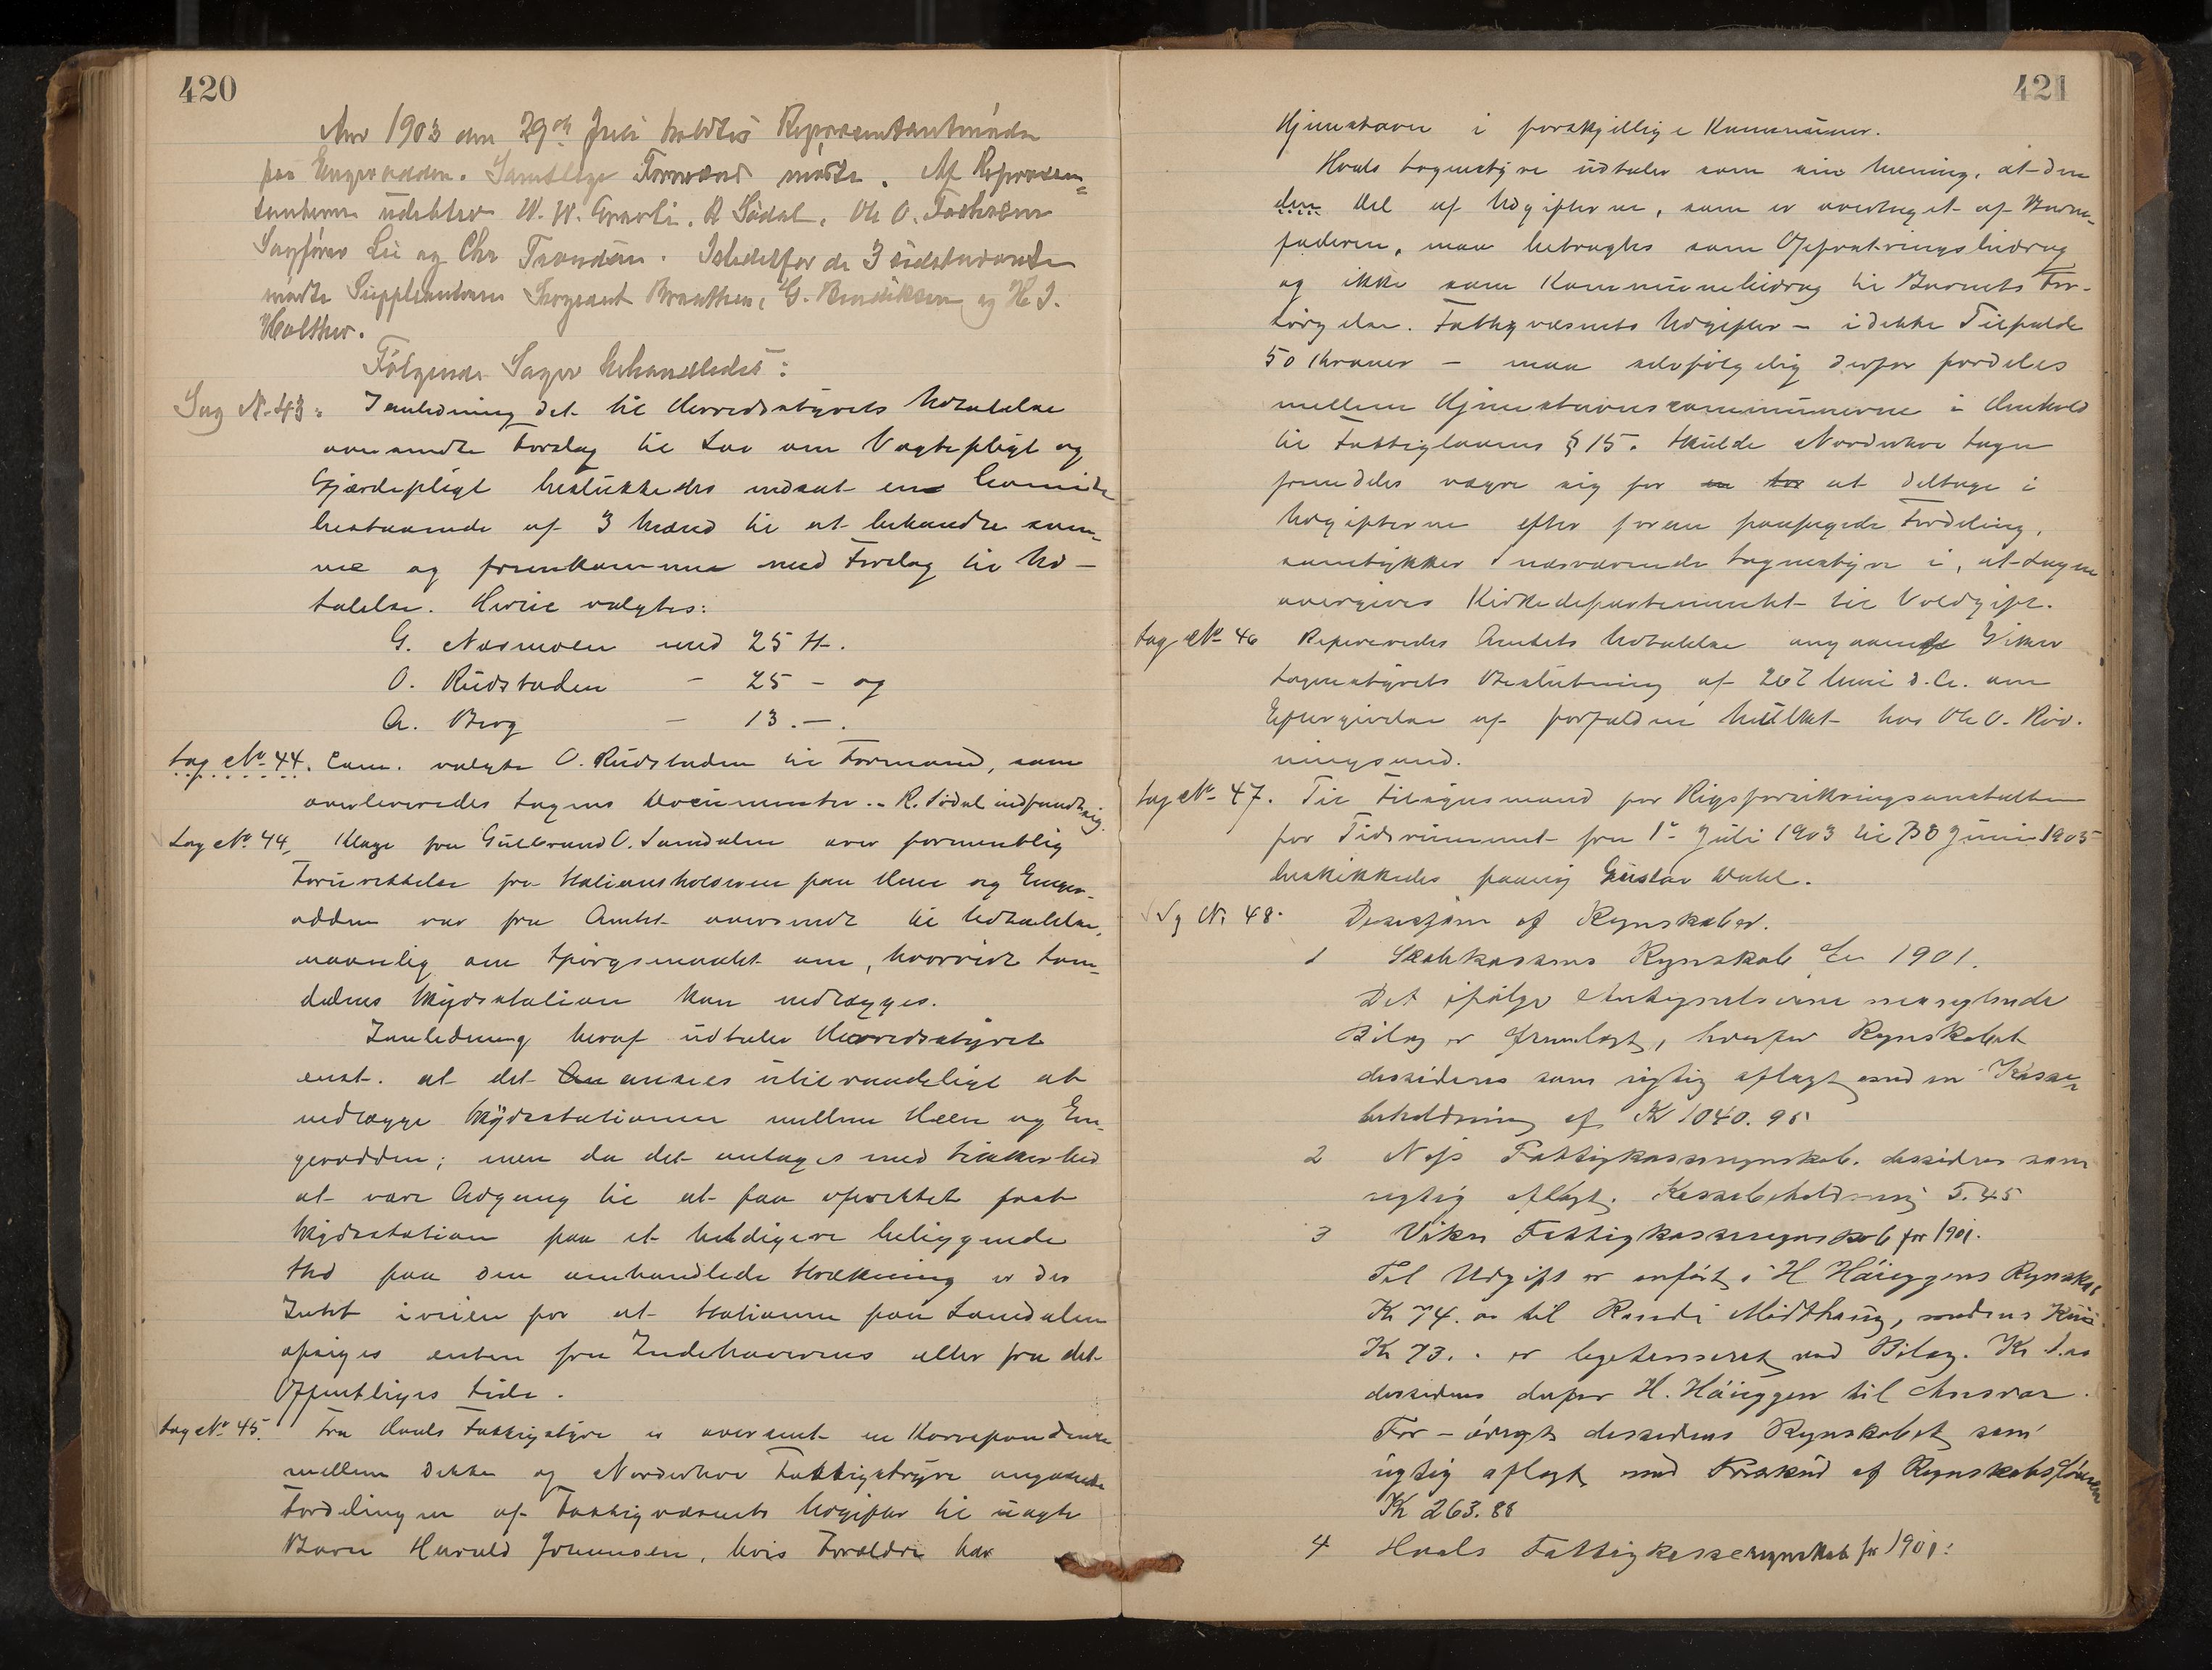 420
Aar 1903 den 29de Juli holdtes Repræsentantmøde
paa Engerodden. Samtlige Formænd mødte. Af Repræsen=
tanterne udeblev W. W. Gravli, R Sådal, Ole O.
Sagfører Lie og Chr Trondsen. Istedetfor de 3 sidstnævnte
mødte Suppleanterne Sergeant Braathen, G. Bendiksen og H. J.
Holther.
Følgende Sager behandledes:
Sag No 43. I anledning det til Herredsstyrets Udtalelse
oversendte Forslag til Lov om Vogtepligt og
Gjærdepligt besluttedes nedsat en Comite
bestaaende af 3 Mænd til at behandle sam-
me og fremkomme med Forslag til Ud-
talelse. Hertil valgtes:
G. Næsmoen med 25 St.
O. Rudstaden - 25 - og
A. Berg - 13. -.
Sag No 44. Com. valgte O. Rudstaden til Formand, som
overleveredes Sagens Documenter. - R. Sådal indfandt sig.
Sag No 44, Klage fra Gulbrand O. Samdalen over formentlig
Forurettelse fra Stationsholderen paa Hæen og Enger-
odden var fra Amtet oversendt til Udtalelse,
navnlig om Spørgsmaalet om, hvorvidt Sam-
dalens Skydsstation kan nedlægges.
I anledning heraf udtaler Herredsstyret
enst. at det ansees utilraadeligt at
nedlægge Skydsstationen mellem Hæen og En-
gerodden; men da det antages med Sikkerhed
at være Adgang til at faa oprettet fast
Skydsstation paa et heldigere beliggende
Sted paa den omhandlede Strækning er der
Intet iveien for at Stationen paa Samdalen
opsiges enten fra Indehaverens eller fra det
Offentliges Side.
Sag No 45. Fra Hvals Fattigstyre er oversendt en Korrespondence
mellem dette og Norderhov Fattigstyre angaaende
Fordelingen af Fattigvæsenets Udgifter til uægte
Barn Harald Johansen, hvis Forældre har
421
Hjemstavn i forskjellige Kommuner.
Hvals Sognestyre udtaler som sin Mening, at den
den Del af Udgifterne, som er overtaget af Barne-
faderen, maa betragtes som Opfostringsbidrag
og ikke som Kommunebidrag til Barnets For-
sørgelse. Fattigvæsenets Udgifter - i dette Tilfælde
50 Kroner - maa selvfølgelig derfor fordeles
mellem Hjemstavnscommunerne i Henhold
til Fattiglovens § 15. Skulde Norderhov Sogn
fremdeles vægre sig for at deltage i
Udgifterne efter foran paapegede Fordeling,
samtykker nærværende Sognestyre i, at Sagen
overgives Kirkedepartementet til Voldgift.
Sag No 46 Refereredes Amtets Udtalelse angaaende Viker
Sognestyrets Beslutning af 26de Juni d. A. om
Eftergivelse af forfalden Mulkt hos Ole O.
ningsand.
Sag No 47. Til Tilsynsmand for Rigsforsikringsanstalten
for Tidsrummet fra 1e Juli 1903 til 30 Juni 1905
beskikkedes paany Gustav Dahl.
Sag No 48. Desisjon af Regnskaber.
1 Skolekassens Regnskab for 1901.
Det ifølge Antegnelserne manglende
Bilag er fremlagt, hvorfor Regnskabet
dessideres som rigtig aflagt med en Kasse-
beholdning af Kr 1040.95
2 Næs Fattigkasseregnskab. dessideres som
rigtig aflagt. Kassebeholdning 5.45
3 Viker Fattigkasseregnskab for 1901.
Til Udgift er anført i H Håieggens Regnskab
Kr 74.00 til Randi Midthaug, medens Kun
Kr 73. - er legitimeret med Bilag. Kr 1.00
dessideres derfor H. Håieggen til Ansvar.
For-øvrigt dessideres Regnskabet som
rigtig aflagt med Forskud af Regnskabsføreren
Kr 263.88
4 Hvals Fattigkasseregnskab for 1901: